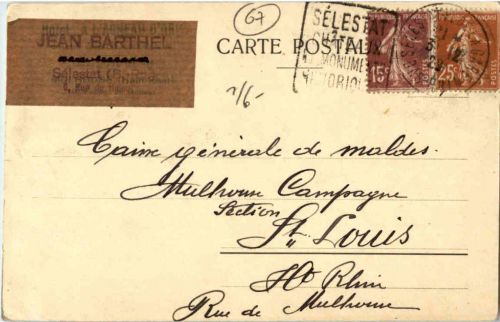 67
Hôtel de l'AGNEAU D'OR
JEAN BARTHEL
Sélestat (B.-Rhin)
CARTE POSTALE
SÉLESTAT
MONUMENTS
HISTORIQUES
15c
25c
2/6-
Caisse générale de maldes.
Mulhouse Campagne
Section
St. Louis
Ht Rhin
Rue de Mulhouse